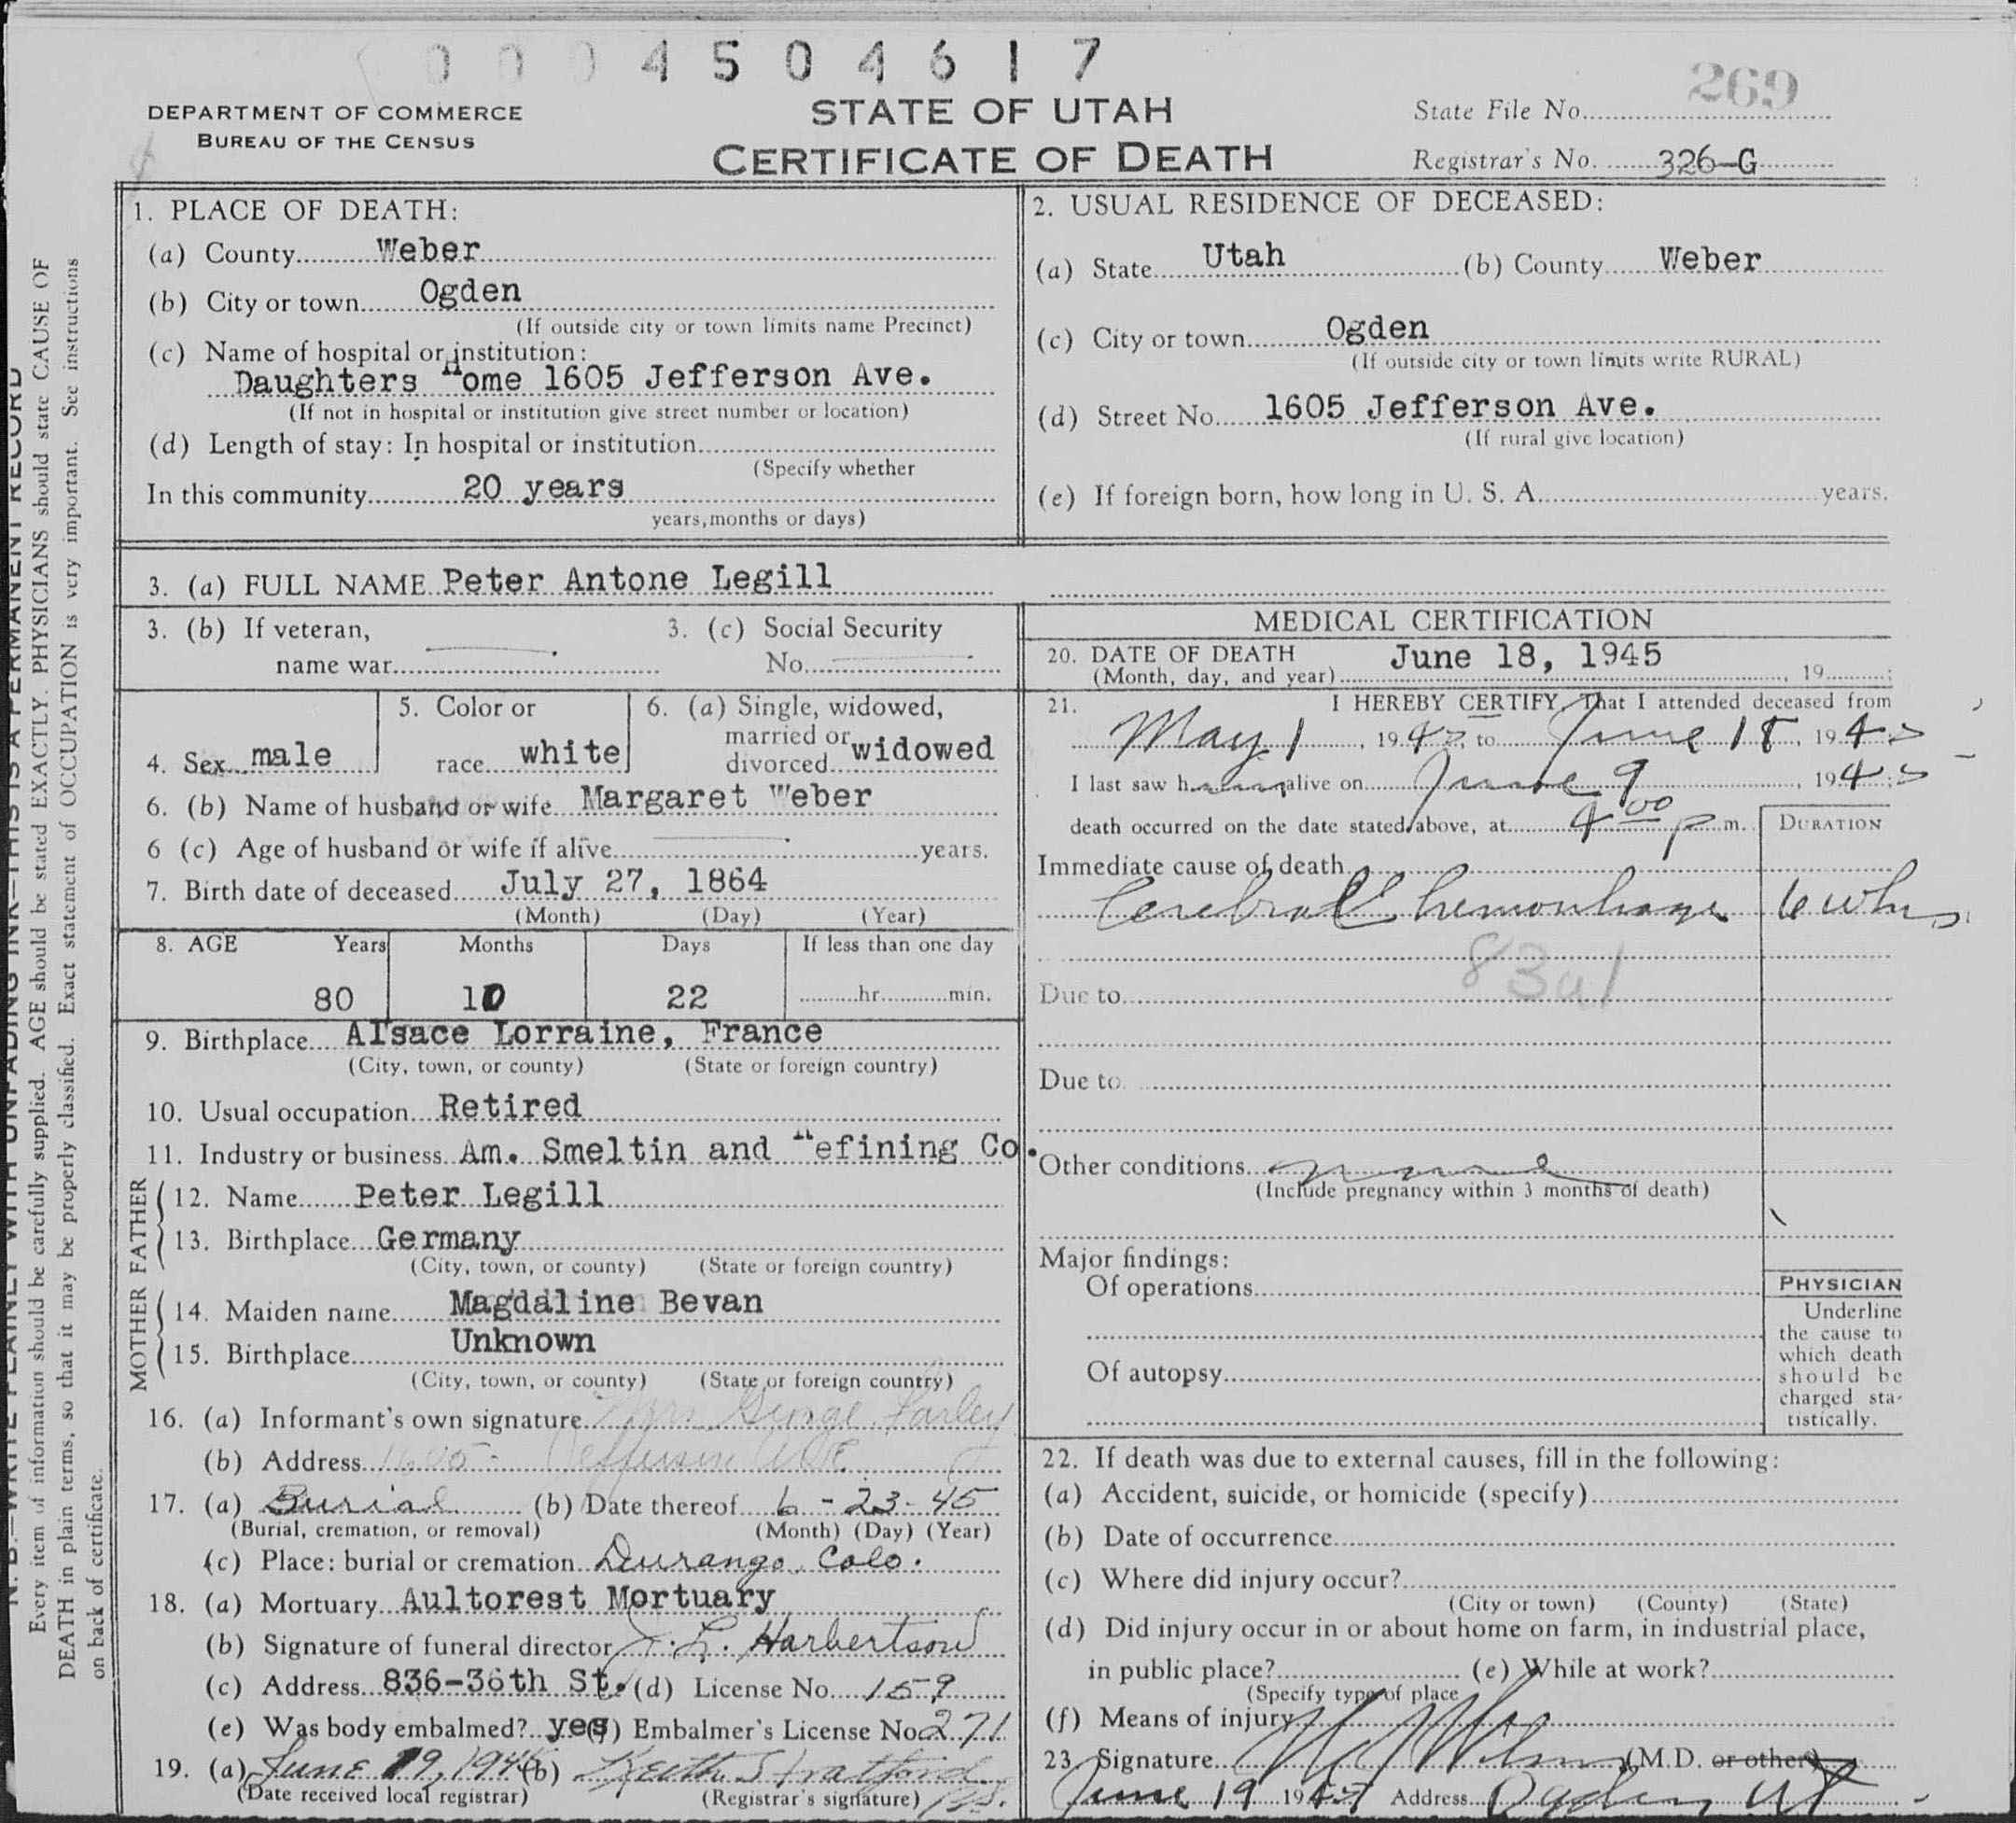 0004504617
269
DEPARTMENT OF COMMERCE
BUREAU OF THE CENSUS
STATE OF UTAH
CERTIFICATE OF DEATH
State File No.
Registrar's No. 326-G
N. B.—WRITE PLAINLY WITH UNFADING INK—THIS IS A PERMANENT RECORD
Every item of information should be carefully supplied. AGE should be stated EXACTLY. PHYSICIANS should state CAUSE OF
DEATH in plain terms, so that it may be properly classified. Exact statement of OCCUPATION is very important. See instructions
on back of certificate.
1. PLACE OF DEATH:
(a) County Weber
(b) City or town Ogden
(If outside city or town limits name Precinct)
(c) Name of hospital or institution:
Daughters Home 1605 Jefferson Ave.
(If not in hospital or institution give street number or location)
(d) Length of stay: In hospital or institution
(Specify whether
In this community 20 years
years, months or days)
2. USUAL RESIDENCE OF DECEASED:
(a) State Utah (b) County Weber
(c) City or town Ogden
(If outside city or town limits write RURAL)
(d) Street No. 1605 Jefferson Ave.
(If rural give location)
(e) If foreign born, how long in U. S. A. years.
3. (a) FULL NAME Peter Antone Legill
3. (b) If veteran, 3. (c) Social Security
name war No.
4. Sex male
5. Color or
race white
6. (a) Single, widowed,
married or
divorced widowed
6. (b) Name of husband or wife Margaret Weber
6 (c) Age of husband or wife if alive years.
7. Birth date of deceased July 27, 1864
(Month) (Day) (Year)
8. AGE Years Months Days If less than one day
80 10 22 hr. min.
9. Birthplace Alsace Lorraine, France
(City, town, or county) (State or foreign country)
10. Usual occupation Retired
11. Industry or business Am. Smeltin and Refining Co.
FATHER
12. Name Peter Legill
13. Birthplace Germany
(City, town, or county) (State or foreign country)
MOTHER
14. Maiden name Magdaline Bevan
15. Birthplace Unknown
(City, town, or county) (State or foreign country)
16. (a) Informant's own signature Mrs George Farley
(b) Address 1605 - Jefferson Ave
17. (a) Burial (b) Date thereof 6-23-45
(Burial, cremation, or removal) (Month) (Day) (Year)
(c) Place: burial or cremation Durango, Colo.
18. (a) Mortuary Aultorest Mortuary
(b) Signature of funeral director J. L. Harbertson
(c) Address 836-36th St. (d) License No. 159
(e) Was body embalmed? yes (f) Embalmer's License No. 271
19. (a) June 19, 1945 (b) Keith Stratford
(Date received local registrar) (Registrar's signature)
MEDICAL CERTIFICATION
20. DATE OF DEATH June 18, 1945
(Month, day, and year) , 19 ;
21. I HEREBY CERTIFY, That I attended deceased from
May 1, 1945, to June 18, 1945
I last saw him alive on June 9, 1945;
death occurred on the date stated above, at 4 00 p. m.
DURATION
Immediate cause of death
Cerebral hemorrhage 6 wks.
83a1
Due to
Due to
Other conditions none
(Include pregnancy within 3 months of death)
Major findings:
Of operations
Of autopsy
PHYSICIAN
Underline
the cause to
which death
should be
charged sta-
tistically.
22. If death was due to external causes, fill in the following:
(a) Accident, suicide, or homicide (specify)
(b) Date of occurrence
(c) Where did injury occur?
(City or town) (County) (State)
(d) Did injury occur in or about home on farm, in industrial place,
in public place? (e) While at work?
(Specify type of place
(f) Means of injury
23. Signature (M.D. or other)
June 19 1945 Address Ogden Ut